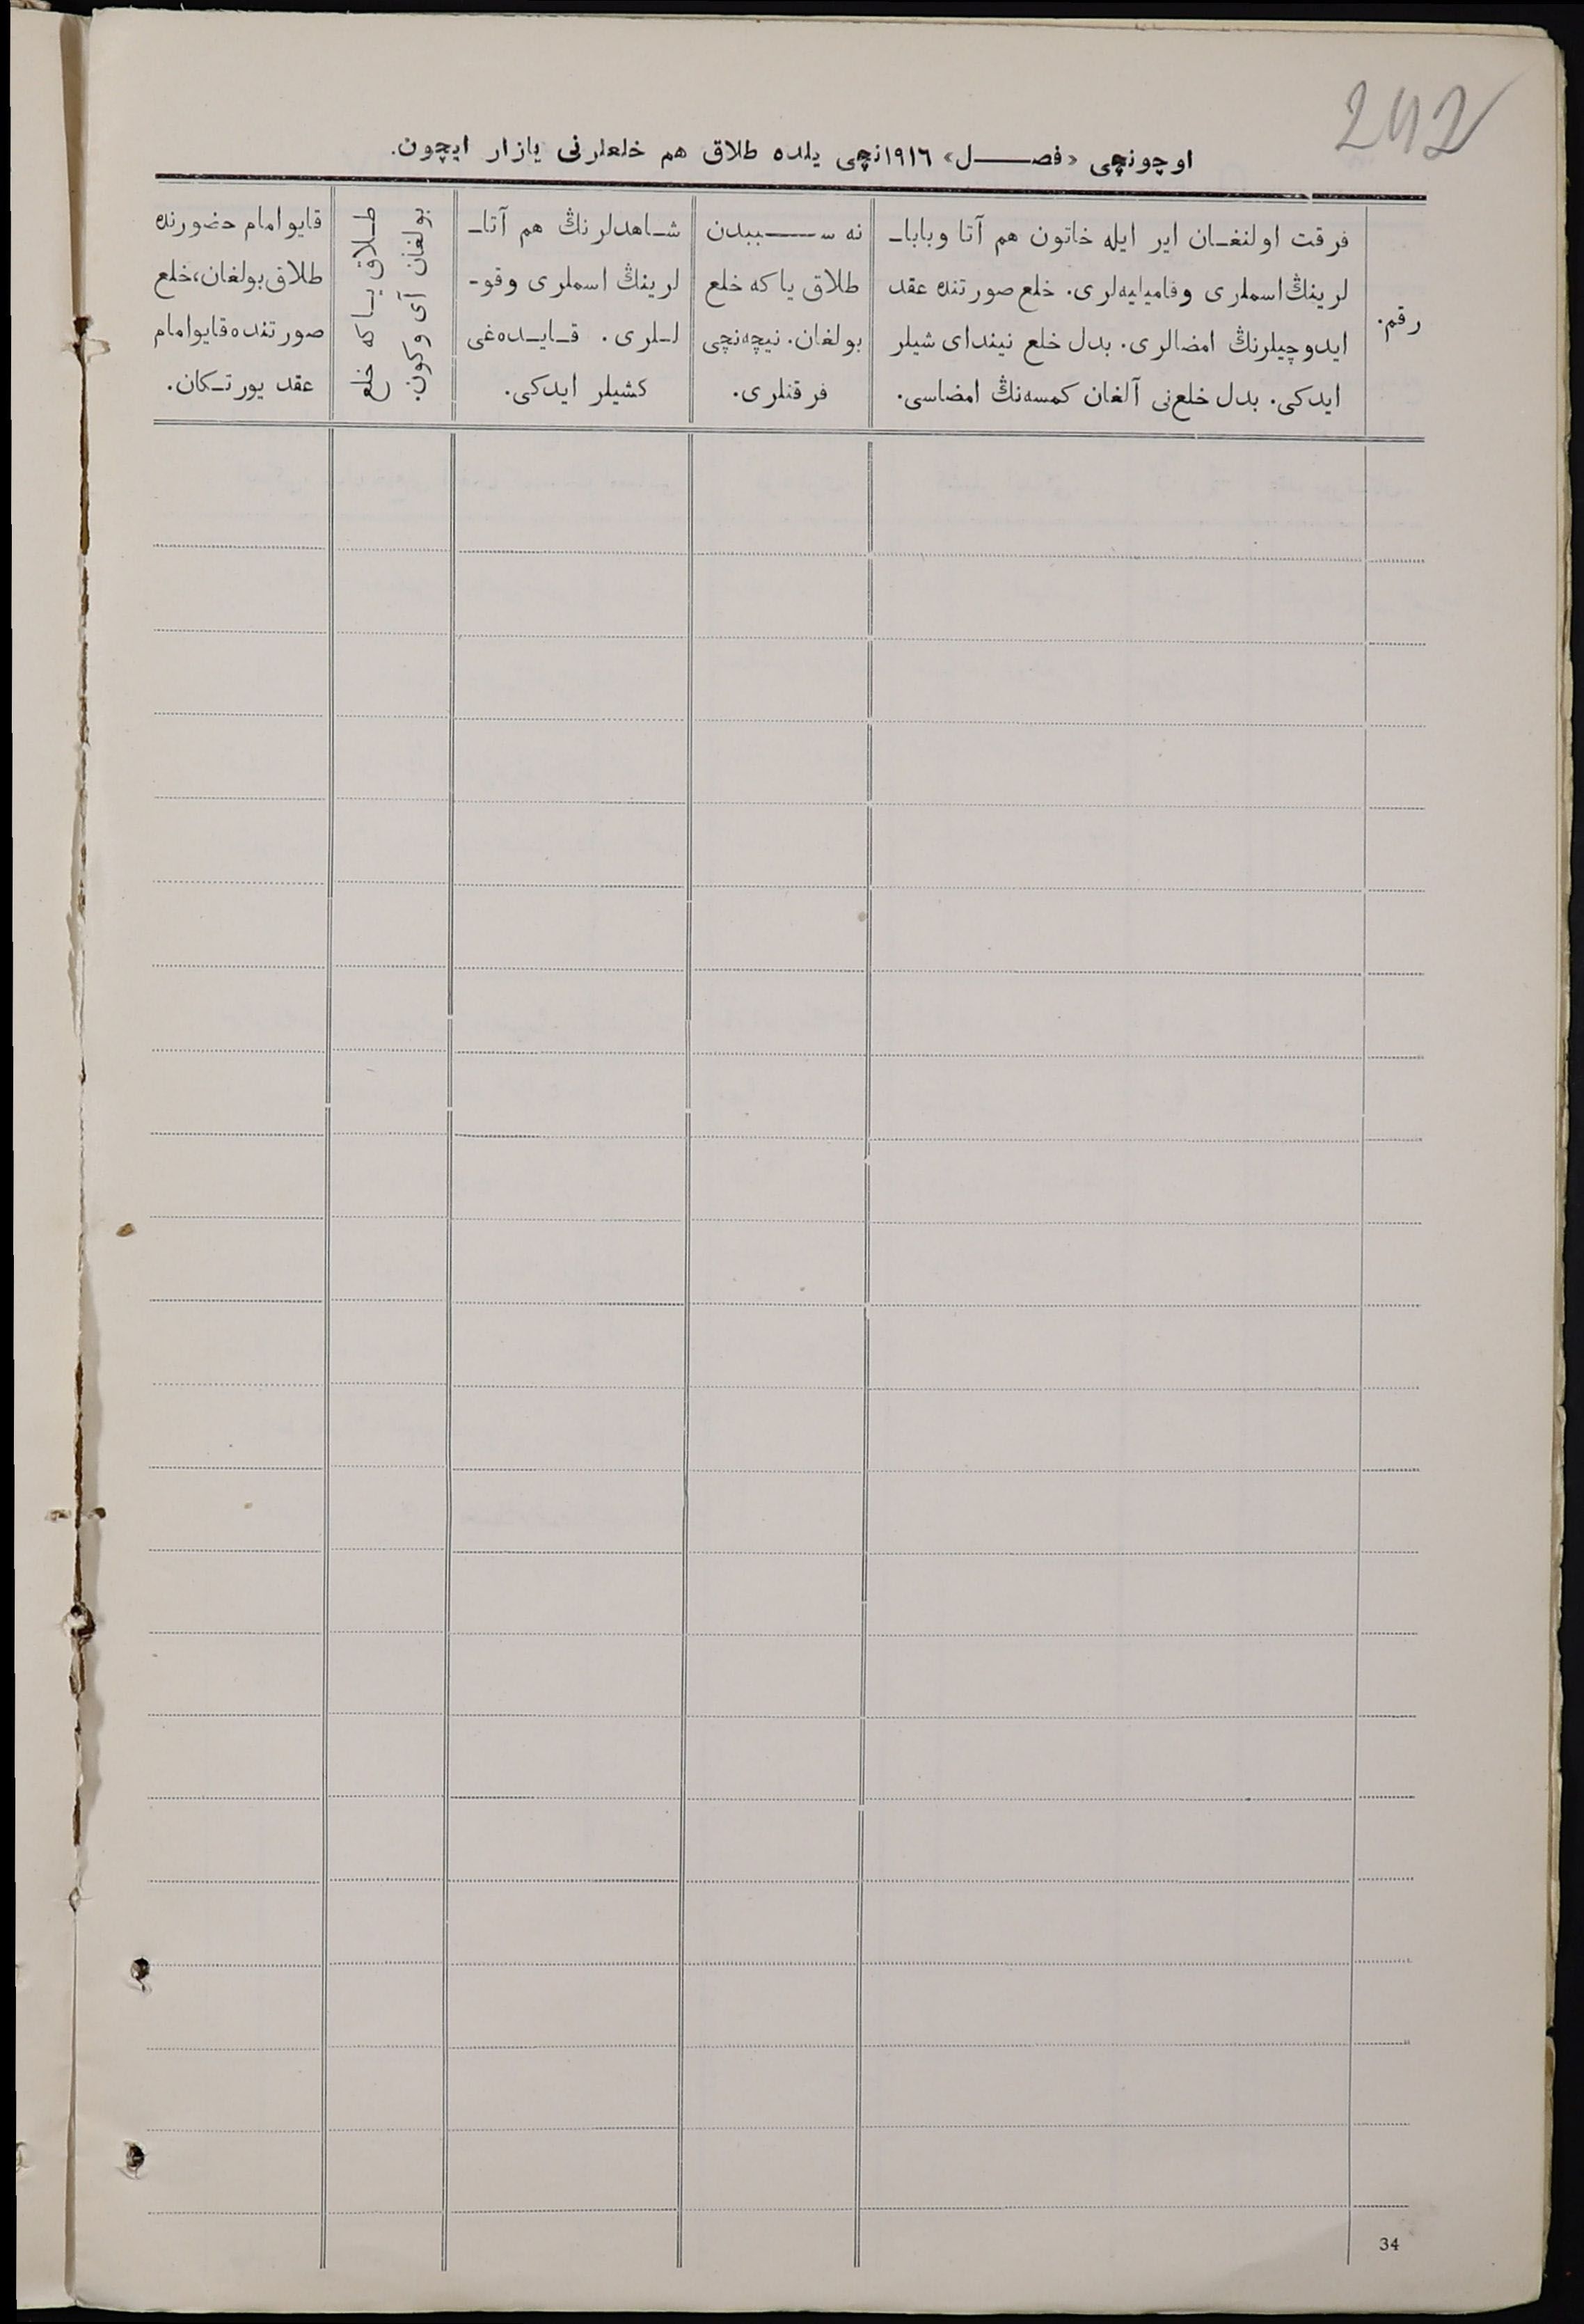 242
اوچونچی «فصل» ١٩١٦نچی يلده طلاق هم خلعلرنی يازار ايچون.
رقم.
فرقت اولنغان اير ايله خاتون هم آتا وبابا-
لرينڭ اسملری وفاميليه‌لری. خلع صورتنده عقد
ايدوچيلرنڭ امضالری. بدل خلع نيندای شيلر
ايدكی. بدل خلع‌نی آلغان كمسه‌نڭ امضاسی.
نه سببدن
طلاق ياكه خلع
بولغان. نيچه‌نچی
فرقتلری.
شاهدلرنڭ هم آتا-
لرينڭ اسملری وقو-
للری. قايده‌غی
كشيلر ايدكی.
طلاق ياكه خلع
بولغان آی وكون.
قايو امام حضورنده
طلاق بولغان، خلع
صورتنده قايو امام
عقد يورتكان.
34